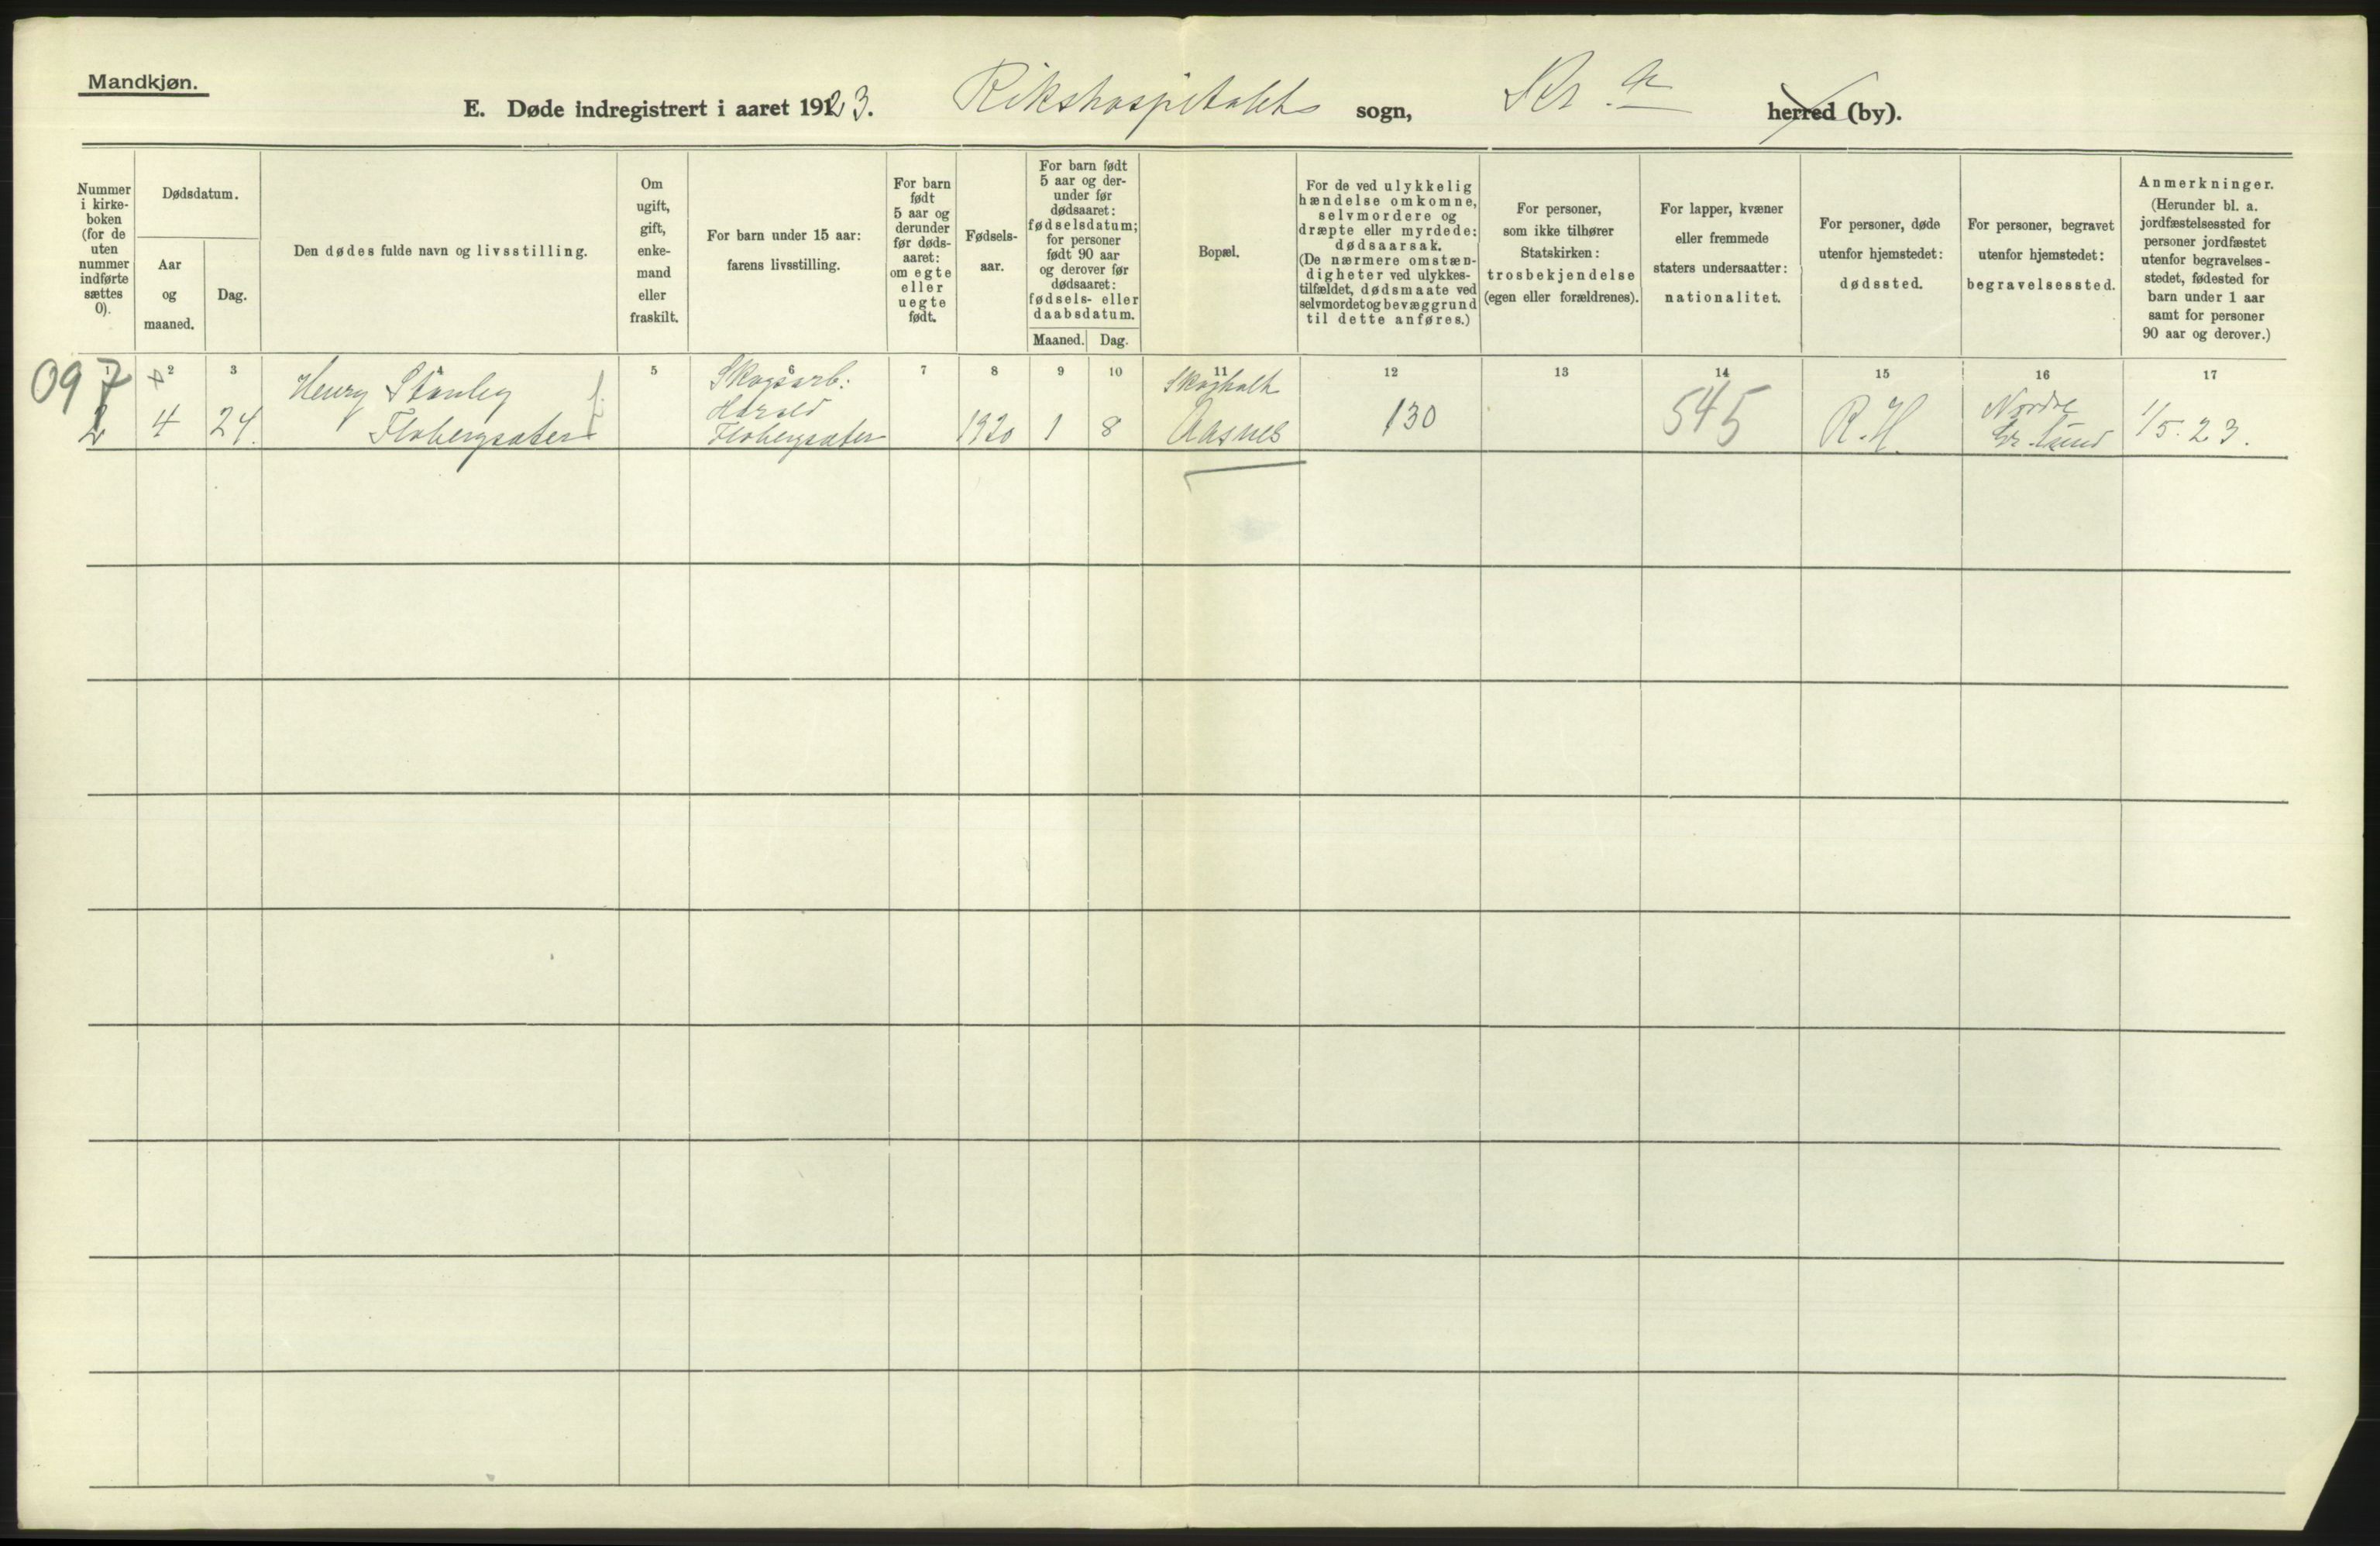 Mandkjøn.
E. Døde indregistrert i aaret 1923. Rikshospitalets sogn, Kr.a herred (by).
Nummer
i kirke-
boken
(for de
uten
nummer
indførte
sættes
0).
Dødsdatum.
Aar
og
maaned.
Dag.
Den dødes fulde navn og livsstilling.
Om
ugift,
gift,
enke-
mand
eller
fraskilt.
For barn under 15 aar:
farens livsstilling.
For barn
født
5 aar og
derunder
før døds-
aaret:
om egte
eller
uegte
født.
Fødsels-
aar.
For barn født
5 aar og der-
under før
dødsaaret:
fødselsdatum;
for personer
født 90 aar
og derover før
dødsaaret:
fødsels- eller
daabsdatum.
Maaned.
Dag.
Bopæl.
For de ved ulykkelig
hændelse omkomne,
selvmordere og
dræpte eller myrdede:
dødsaarsak.
(De nærmere omstæn-
digheter ved ulykkes-
tilfældet, dødsmaate ved
selvmordet og bevæggrund
til dette anføres.)
For personer,
som ikke tilhører
Statskirken:
trosbekjendelse
(egen eller forældrenes).
For lapper, kvæner
eller fremmede
staters undersaatter:
nationalitet.
For personer, døde
utenfor hjemstedet:
dødssted.
For personer, begravet
utenfor hjemstedet:
begravelsessted.
Anmerkninger.
(Herunder bl. a.
jordfæstelsessted for
personer jordfæstet
utenfor begravelses-
stedet, fødested for
barn under 1 aar
samt for personer
90 aar og derover.)
1 2 3 4 5 6 7 8 9 10 11 12 13 14 15 16 17
097
2
4
24.
Henry Stanley
Flobergsæter
Skogsarb.
Harald
Flobergsæter
1920
1
8
Skogholt
Aasnes
130
545
R.H.
Nordre
Gr.lund
1/5.23.